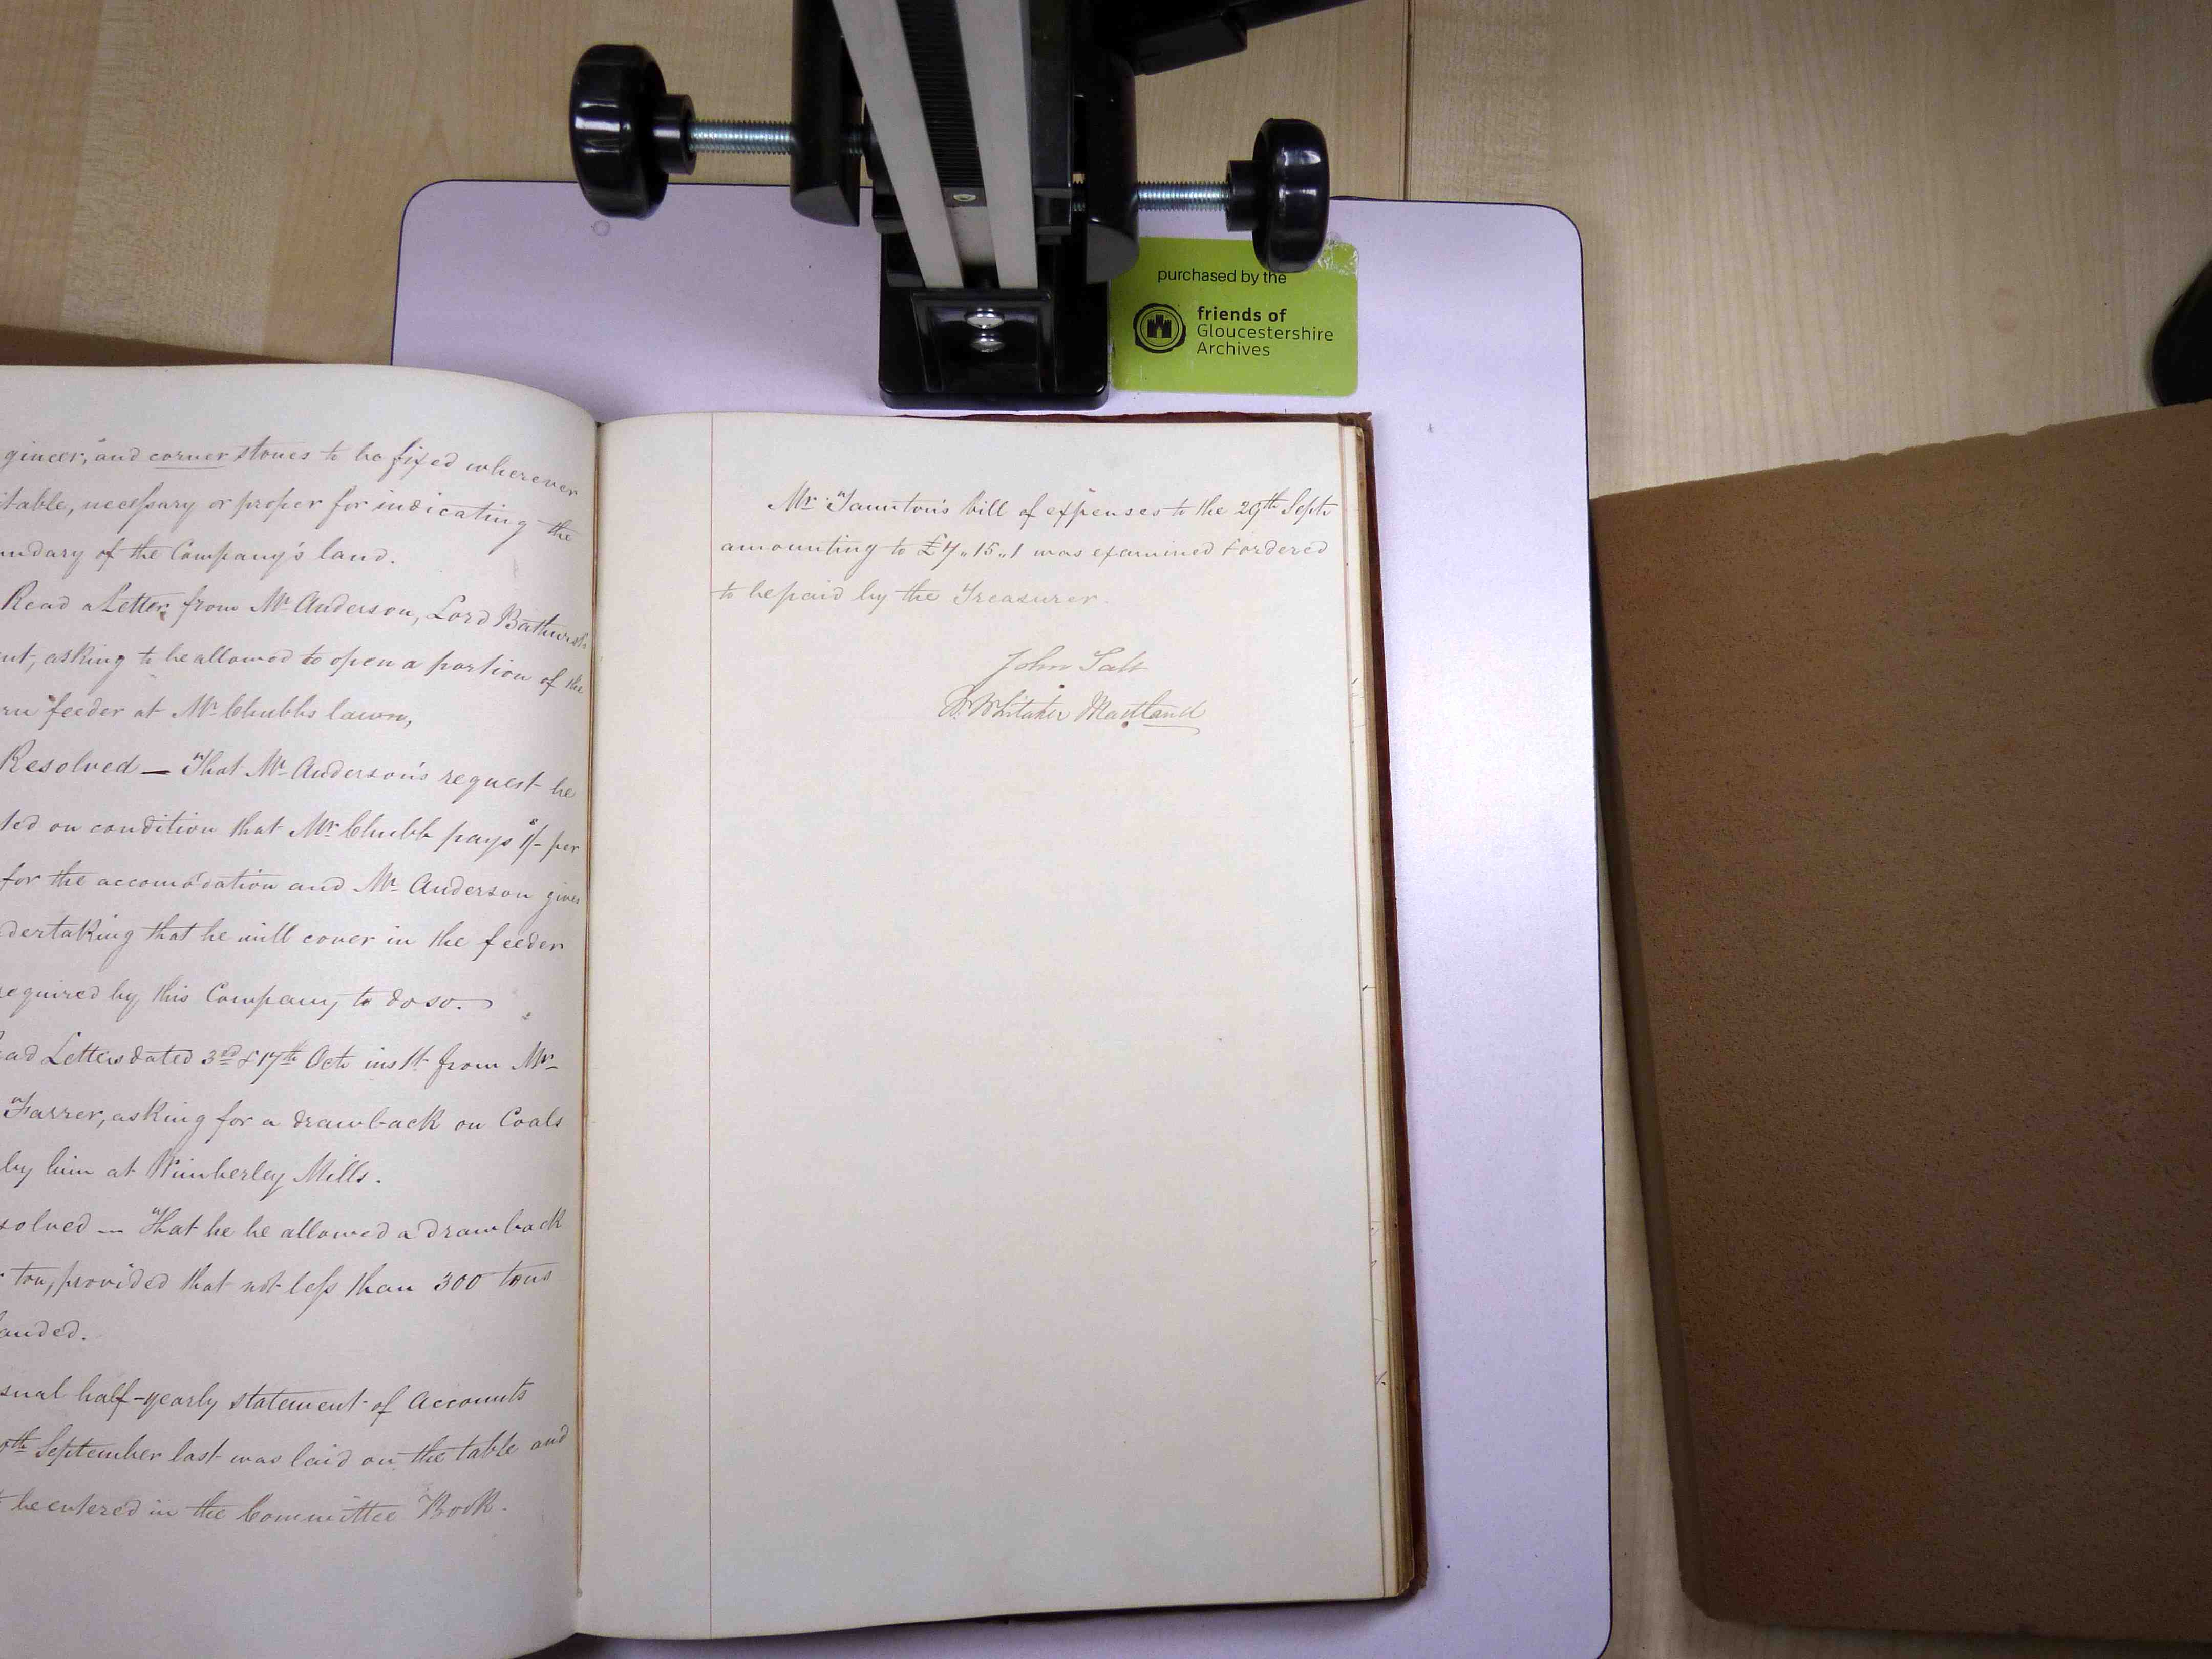 purchased by the
friends of
Gloucestershire
Archives
gineer, and corner stones to be fixed wherever
itable, necessary or proper for indicating the
undary of the Company's land.
Read a Letter from Mr Anderson, Lord Bathurst's
nt, asking to be allowed to open a portion of the
rn feeder at Mr Chubbs lawn,
Resolved — That Mr Anderson's request be
ted on condition that Mr Chubb pays 1/- per
for the accomodation and Mr Anderson gives
dertaking that he will cover in the feeder
required by this Company to do so.
ad Letters dated 3rd & 17th Octr inst from Mr
Farrer, asking for a drawback on Coals
by him at Wimberley Mills.
solved — That he be allowed a drawback
ton, provided that not less than 300 tons
anded.
sual half-yearly statement of Accounts
th September last was laid on the table and
be entered in the Committee Book.
Mr Taunton's bill of expenses to the 29th Septr
amounting to £7,,15,,1 was examined & ordered
to be paid by the Treasurer.
John Salt
W. Whitaker Maitland